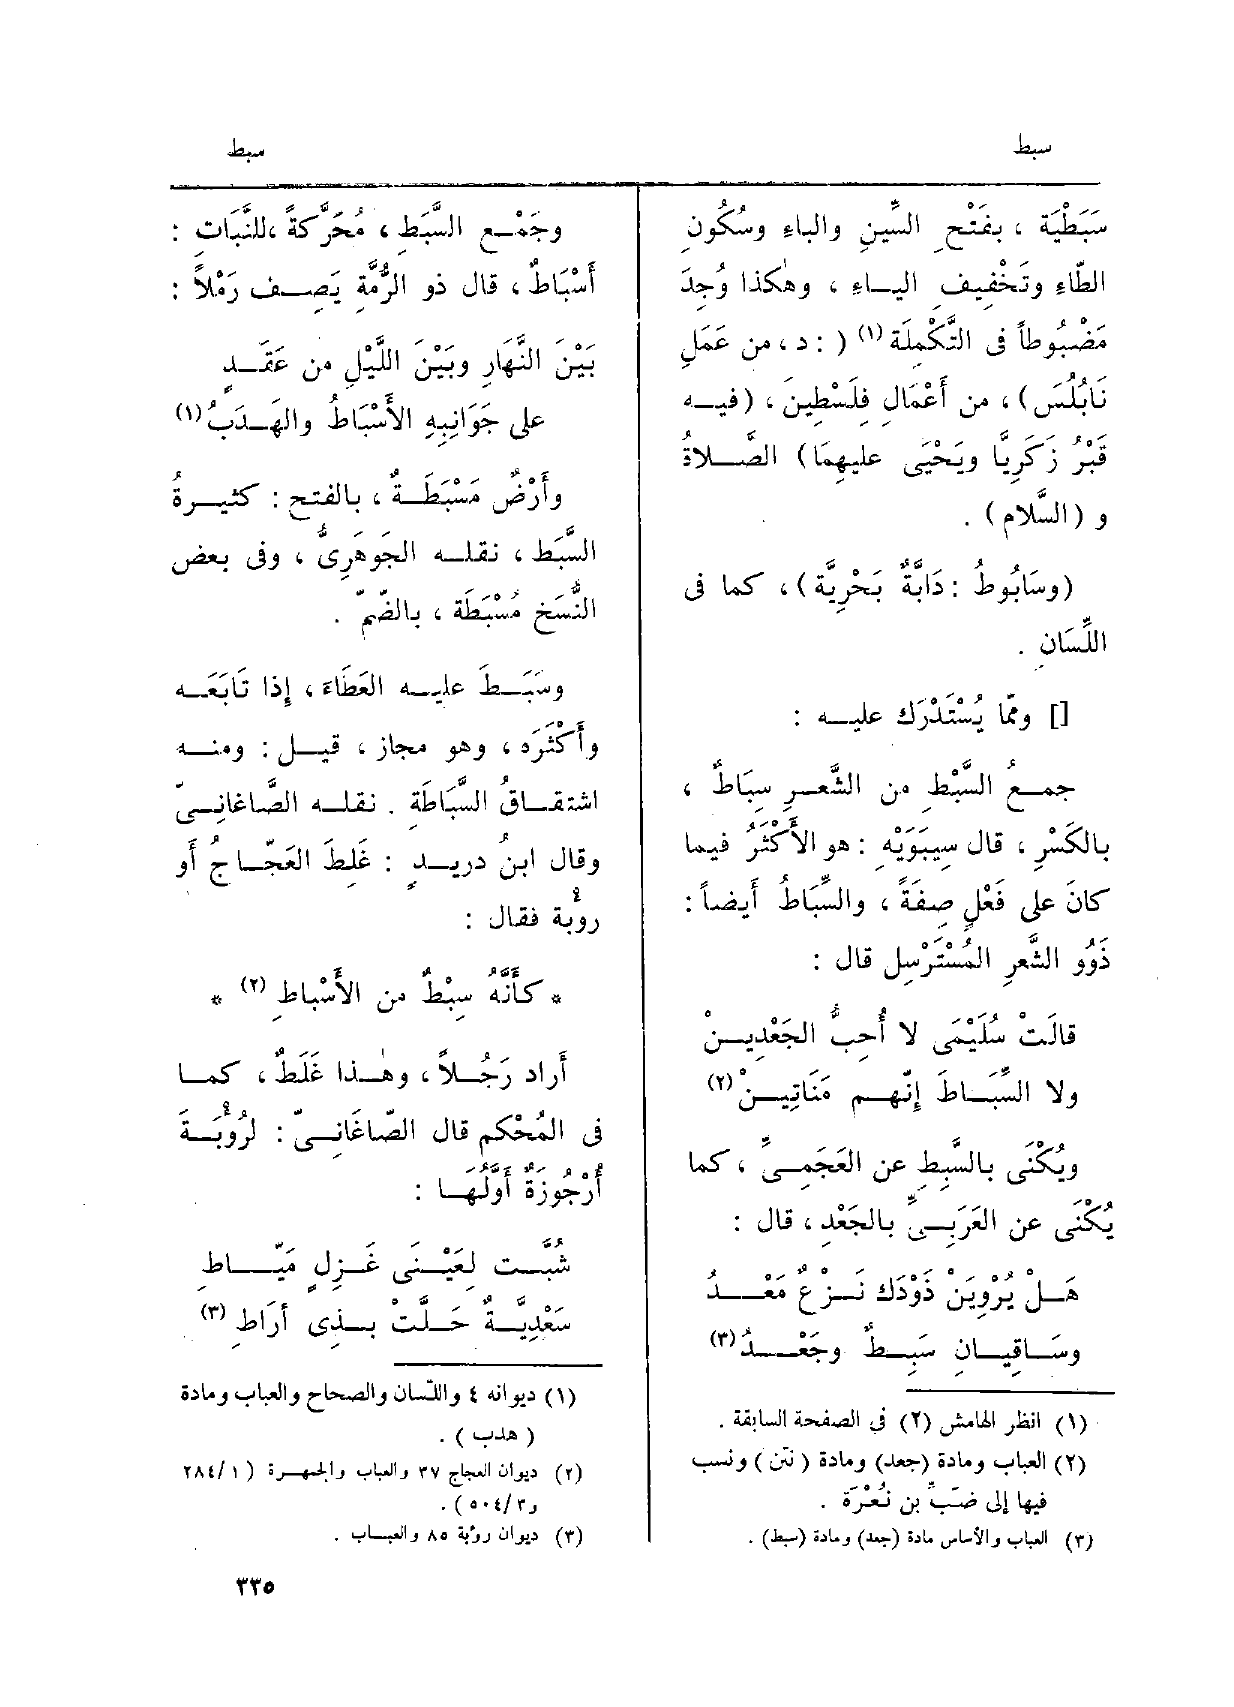 سبط
سبط
سَبَطْيَة ، بفَتْح السِّينِ والباءِ وسُكُونِ
الطّاءِ وتَخْفِيفِ اليـاءِ ، وهٰكذا وُجِدَ
مَضْبُوطاً فى التَّكْمِلَة (١) ( : د ، من عَمَلِ
نَابُلُسَ) ، من أَعْمَالِ فِلَسْطِينَ ، (فيـه
قَبْرُ زَكَرِيَّا ويَحْيَى عليهِمَا) الصَّـلاةُ
و (السَّلام) .
(وسَابُوطُ : دَابَّةٌ بَحْرِيَّة) ، كما فى
اللِّسَان .
[] وممّا يُسْتَدْرَك عليـه :
جمـعُ السَّبْطِ من الشَّعـرِ سِبَاطٌ ،
بالكَسْرِ ، قال سِيبَوَيْهِ : هو الأَكْثَرُ فيما
كانَ على فَعْلٍ صِفَةً ، والسِّبَاطُ أَيضـاً :
ذَوُو الشَّعرِ المُسْتَرْسِل قال :
قالَتْ سُلَيْمَى لا أُحِبُّ الجَعْدِيـنْ
ولا السِّبَـاطَ إِنّهـم مَنَاتِيـنْ (٢)
ويُكْنَى بالسَّبِطِ عن العَجَمِـىِّ ، كما
يُكْنَى عن العَرَبِـىِّ بالجَعْدِ ، قال :
هَـلْ يُرْوِيَنْ ذَوْدَكَ نَـزْعٌ مَعْـدُ
وسَـاقِيَـانِ سَبِـطٌ وجَعْـدُ (٣)
(١) انظر الهامش (٢) فى الصفحة السابقة .
(٢) العباب ومادة (جعد) ومادة (نتن) ونسب
فيها إلى ضَبِّ بن نُعْرَة .
(٣) العباب والأساس مادة (جعد) ومادة (سبط) .
وجَمْـع السَّبَطِ ، مُحَرَّكةً ،للنَّبَاتِ :
أَسْبَاطٌ ، قال ذو الرُّمَّةِ يَصِـف رَمْلاً :
بَيْنَ النَّهارِ وبَيْنَ اللَّيْلِ من عَقَـدٍ
على جَوَانِبِهِ الأَسْبَاطُ والهَـدَبُ (١)
وأَرْضٌ مَسْبَطَـةٌ ، بالفتح : كثيـرةُ
السَّبَط ، نقلـه الجَوهَرِىُّ ، وفى بعض
النُّسَخ مُسْبَطَة ، بالضّمّ .
وسَبَـطَ عليـه العَطَاءَ ، إِذا تَابَعَـه
وأَكْثَرَه ، وهو مجاز ، قيـل : ومنـه
اشتقـاقُ السَّبَاطَةِ . نقلـه الصَّاغانِـىّ
وقال ابنُ دريـدٍ : غَلِطَ العَجّـاجُ أَو
رؤبة فقال :
* كأَنَّهُ سِبْطٌ من الأَسْباطِ (٢) *
أَراد رَجُـلاً ، وهٰـذا غَلَطٌ ، كمـا
فى المُحْكمِ قال الصّاغَانِـىّ : لرُؤْبَـةَ
أُرْجُوزَةٌ أَوَّلُهـا :
شُبَّـت لعَيْـنَى غَـزِلٍ مَيّـاطِ
سَعْدِيَّـةٌ حَلَّتْ بـذى أَراطِ (٣)
(١) ديوانه ٤ واللسان والصحاح والعباب ومادة
( هدب ) .
(٢) ديوان العجاج ٣٧ والعباب والجمهـرة ( ١/ ٢٨٤
و٣/ ٥٠٤ ) .
(٣) ديوان رؤبة ٨٥ والعبـاب .
٣٣٥